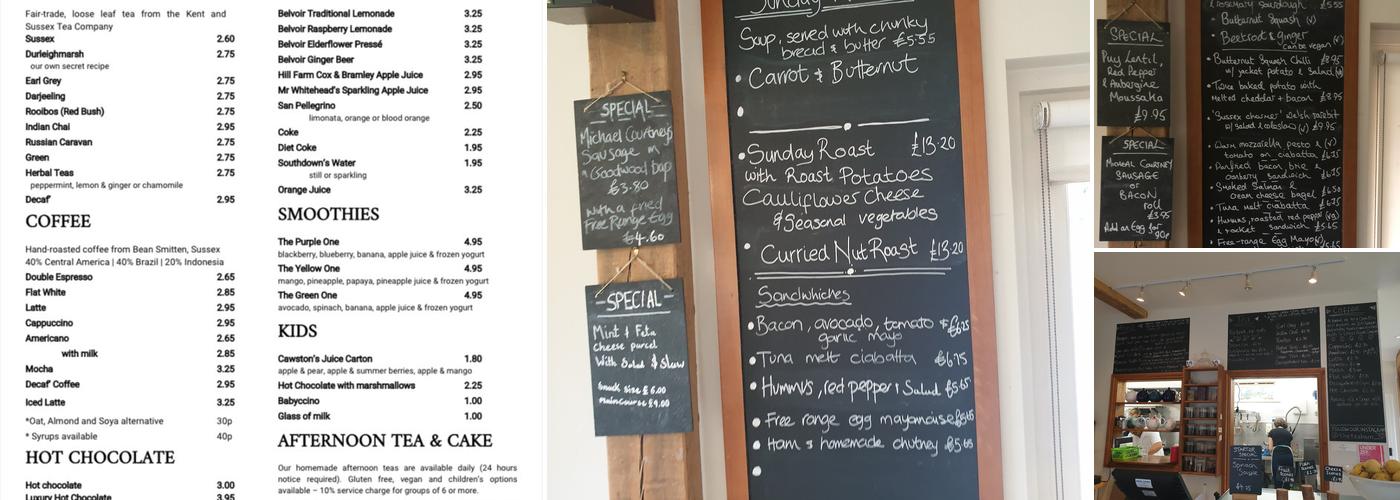 Fair-trade, loose leaf tea from the Kent and
Sussex Tea Company
Sussex 2.60
Durleighmarsh 2.75
our own secret recipe
Earl Grey 2.75
Darjeeling 2.75
Rooibos (Red Bush) 2.75
Indian Chai 2.95
Russian Caravan 2.75
Green 2.75
Herbal Teas 2.75
peppermint, lemon & ginger or chamomile
Decaf 2.95
COFFEE
Hand-roasted coffee from Bean Smitten, Sussex
40% Central America | 40% Brazil | 20% Indonesia
Double Espresso 2.65
Flat White 2.85
Latte 2.95
Cappuccino 2.95
Americano 2.65
with milk 2.85
Mocha 3.25
Decaf Coffee 2.95
Iced Latte 3.25
*Oat, Almond and Soya alternative 30p
* Syrups available 40p
HOT CHOCOLATE
Hot chocolate 3.00
Luxury Hot Chocolate 3.95
Belvoir Traditional Lemonade 3.25
Belvoir Raspberry Lemonade 3.25
Belvoir Elderflower Pressé 3.25
Belvoir Ginger Beer 3.25
Hill Farm Cox & Bramley Apple Juice 2.95
Mr Whitehead's Sparkling Apple Juice 2.95
San Pellegrino 2.50
limonata, orange or blood orange
Coke 2.25
Diet Coke 1.95
Southdown's Water 1.95
still or sparkling
Orange Juice 3.25
SMOOTHIES
The Purple One 4.95
blackberry, blueberry, banana, apple juice & frozen yogurt
The Yellow One 4.95
mango, pineapple, papaya, pineapple juice & frozen yogurt
The Green One 4.95
avocado, spinach, banana, apple juice & frozen yogurt
KIDS
Cawston's Juice Carton 1.80
apple & pear, apple & summer berries, apple & mango
Hot Chocolate with marshmallows 2.25
Babyccino 1.00
Glass of milk 1.00
AFTERNOON TEA & CAKE
Our homemade afternoon teas are available daily (24 hours
notice required). Gluten free, vegan and children's options
available – 10% service charge for groups of 6 or more.
SPECIAL
Michael Courtney's
Sausage in
a Goodwood bap
£3.80
with a fried
Free Range Egg
£4.60
-SPECIAL-
Mint + Feta
Cheese parcel
With Salad & Slaw
Snack size £6.00
Main Course £9.00
Sunday
Soup, served with chunky
bread & butter £5.55
• Carrot & Butternut
• Sunday Roast £13.20
with Roast Potatoes
Cauliflower Cheese
& Seasonal vegetables
• Curried Nut Roast £13.20
Sandwhiches
• Bacon, avocado, tomato + £6.25
garlic mayo
• Tuna melt ciabatta £6.75
• Hummus, red pepper & Salad £5.65
• Free range egg mayonaise £5.65
• Ham & homemade chutney £5.65
SPECIAL
Puy Lentil,
Red Pepper
& Aubergine
Moussaka
£9.95
SPECIAL
MICHAEL COURTNEY
SAUSAGE
or
BACON
roll
£3.95
Add an Egg for
90p
rosemary sourdough £5.55
• Butternut Squash (v)
• Beetroot & ginger (v)
can be vegan
• Butternut Squash Chilli £8.95
w/ jacket potato & Salad
• Twice baked potato with
melted cheddar + bacon £8.95
• 'Sussex charmer' welsh rarebit
w/ salad & coleslaw (v) £9.95
• Warm mozzarella, pesto & (v)
tomato on ciabatta £6.75
• Panfried bacon, brie &
cranberry Sandwich £6.75
• Smoked Salmon &
cream cheese bagel £6.50
• Tuna melt ciabatta £6.75
• Humus, roasted red pepper (vg)
& rocket Sandwich £5.65
• Free-range Egg Mayo (v)
STARTER
SPECIAL